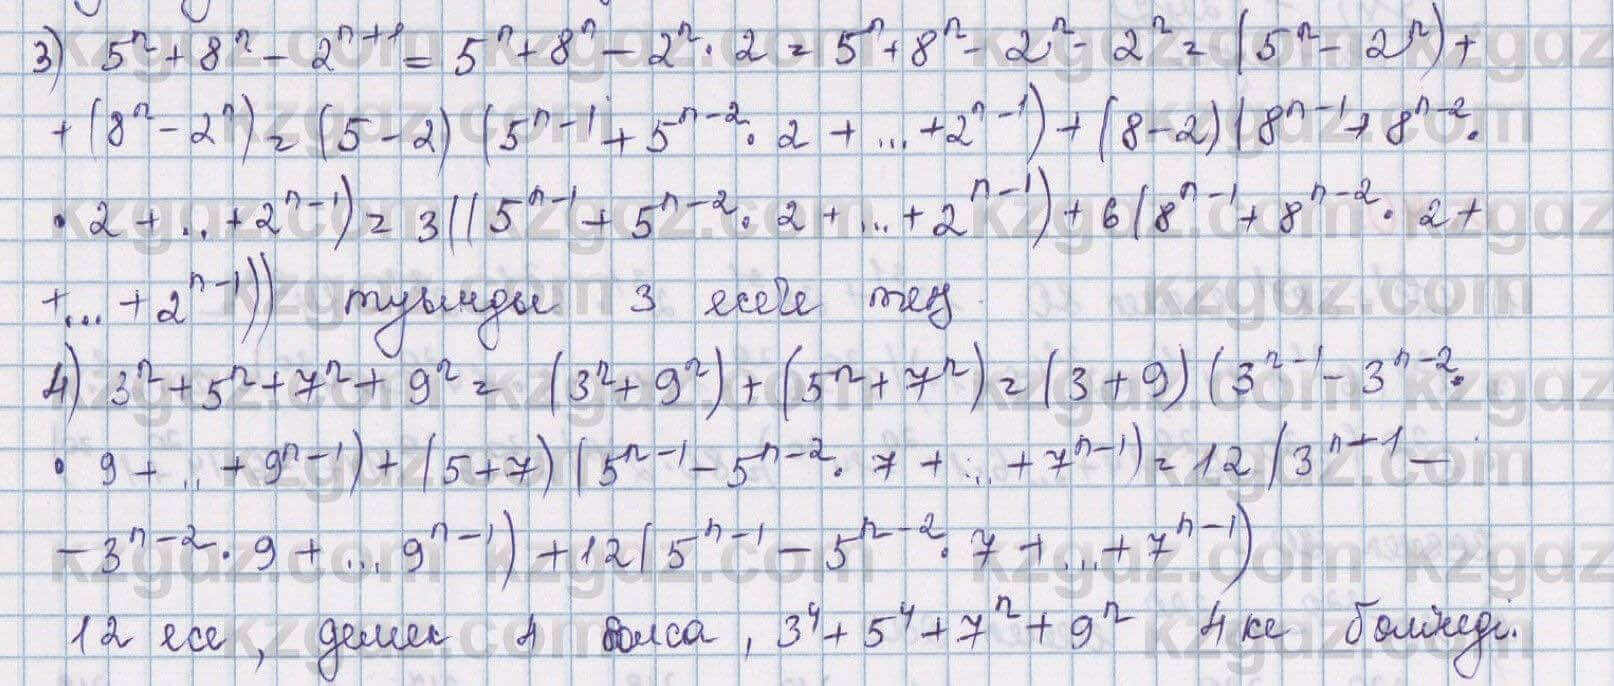 3) 5ⁿ + 8ⁿ - 2ⁿ⁺¹ = 5ⁿ + 8ⁿ - 2ⁿ · 2 = 5ⁿ + 8ⁿ - 2ⁿ - 2ⁿ = (5ⁿ - 2ⁿ) +
+ (8ⁿ - 2ⁿ) = (5 - 2) (5ⁿ⁻¹ + 5ⁿ⁻² · 2 + ... + 2ⁿ⁻¹) + (8 - 2) (8ⁿ⁻¹ + 8ⁿ⁻² ·
· 2 + ... + 2ⁿ⁻¹) = 3 ((5ⁿ⁻¹ + 5ⁿ⁻² · 2 + ... + 2ⁿ⁻¹) + 6 (8ⁿ⁻¹ + 8ⁿ⁻² · 2 +
+ ... + 2ⁿ⁻¹)) туынды 3 есеге тең
4) 3ⁿ + 5ⁿ + 7ⁿ + 9ⁿ = (3ⁿ + 9ⁿ) + (5ⁿ + 7ⁿ) = (3 + 9) (3ⁿ⁻¹ - 3ⁿ⁻² ·
· 9 + ... + 9ⁿ⁻¹) + (5 + 7) (5ⁿ⁻¹ - 5ⁿ⁻² · 7 + ... + 7ⁿ⁻¹) = 12 (3ⁿ⁺¹ -
- 3ⁿ⁻² · 9 + ... 9ⁿ⁻¹) + 12 (5ⁿ⁻¹ - 5ⁿ⁻² · 7 + ... + 7ⁿ⁻¹)
12 есе, демек 4 болса, 3⁴ + 5⁴ + 7ⁿ + 9ⁿ 4 ке бөлінеді.
kzgdz.com